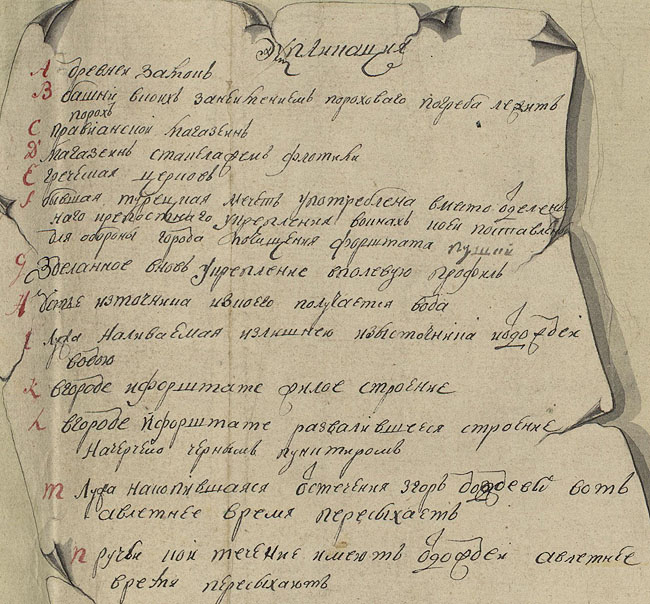 Эѯпликация
А древней замокъ
B башни вкоихъ занеимениемъ пороховаго погреба лежитъ
порохъ
C правианской магазеинъ
D магазеинъ станкладемъ флотики
E греческая церковь
F бывшая турецкая мечеть употреблена вместо
наго крепостнаго укрепления воинахъ коей поставлены
для обороны города посищения форштата пушки
G Зделанное вновь укрепление вполевую профиль
H источника изкоего получается вода
I Лужа наливаемая излишнею изысточника
водою
K вгороде ифорштате жилое строение
L вгороде ифорштате развалившееся строение
начерчено чернымъ пунктиромъ
m Лужа накопившаяся отстечения згоръ дождевыхъ водъ
авлетнее время пересыхаетъ
n ручьи кои течение имеютъ авлетнее
время пересыхаютъ